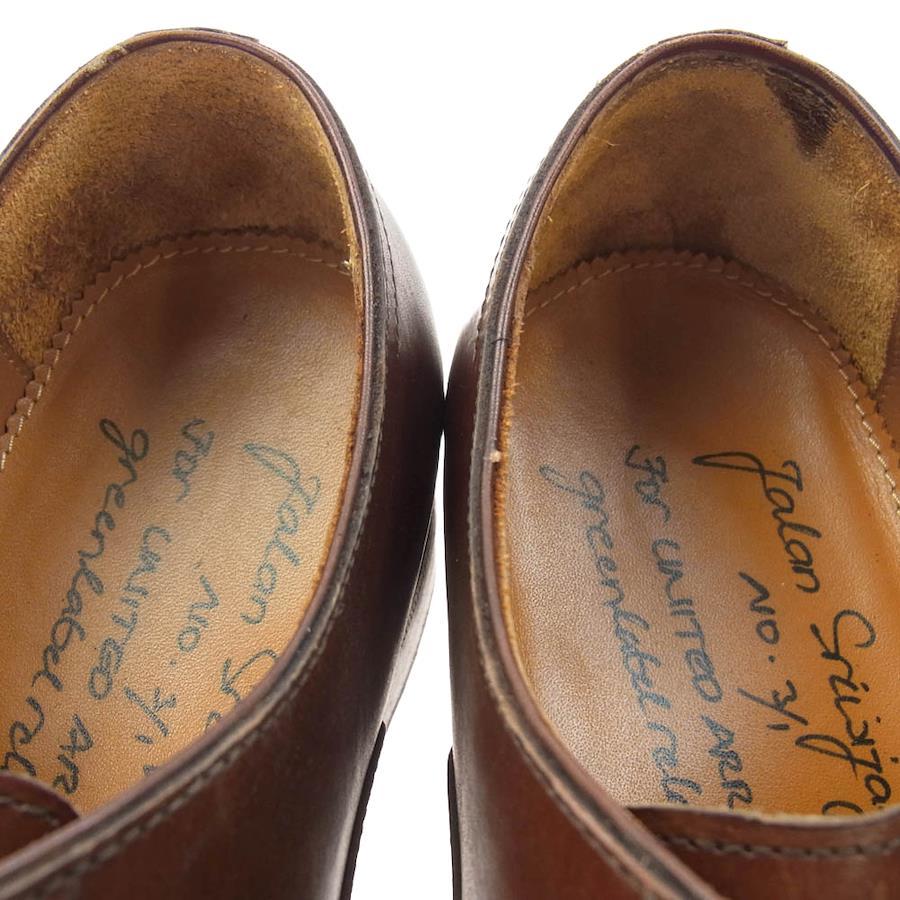 Jalan
No. 3/1
For UNITED ARR
greenlabel rel
Jalan Srikja
No. 3/1
For UNITED ARR
greenlabel rela